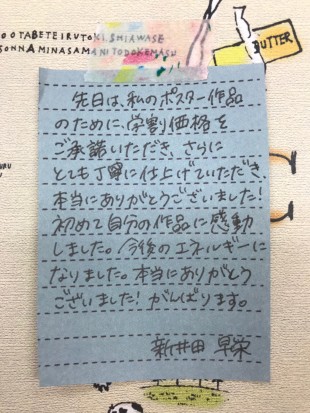 OOTABETEIRUTOKI.SHIAWASE
SONNAMINASAMANITODOKEMASU
BUTTER
先日は、私のポスター作品
のために、学割価格を
ご承諾いただき、さらに
とても丁寧に仕上げていただき、
本当にありがとうございました!
初めて自分の作品に感動
しました。今後のエネルギーに
なりました。本当にありがとう
ございました! がんばります。
新井田 早栄